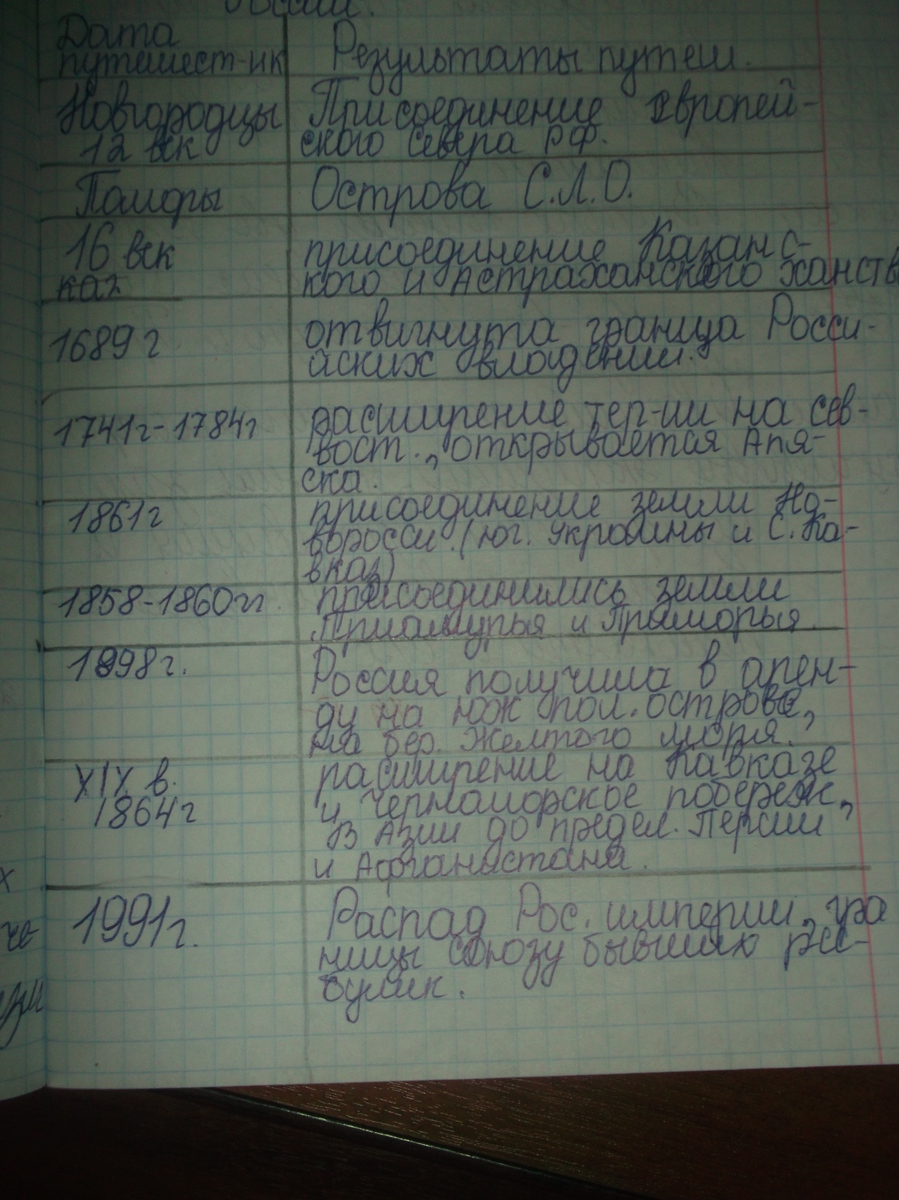 России.
Дата
путешест-ик
Результаты путеш.
Новгородцы
12 век
Присоединение европей-
ского севера РФ.
Поморы
Острова С.Л.О.
16 век
присоединение Казанс-
кого и Астраханского ханств
1689 г
отвигнута граница Росси-
йских владений.
1741г-1784г
расширение тер-ии на сев-
вост., открывается Аля-
ска.
1861г
присоединение земли Но-
воросси. (юг. Украины и С. Ка-
вказ)
1858-1860гг.
присоединились земли
Приамурья и Приморья.
1898г.
Россия получила в арен-
ду на юж пол. острове,
на бер. Желтого моря.
XIX в.
1864г
расширение на Кавказе
и Черноморское побереж,
в Азии до предел. Персии
и Афганистана.
1991г.
Распад Рос. империи, гра
ницы союзу бывших рес-
булик.